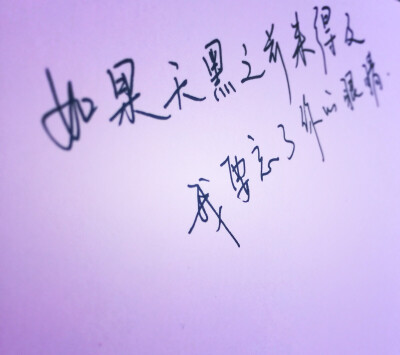 如果天黑之前来得及
我要忘了你的眼睛